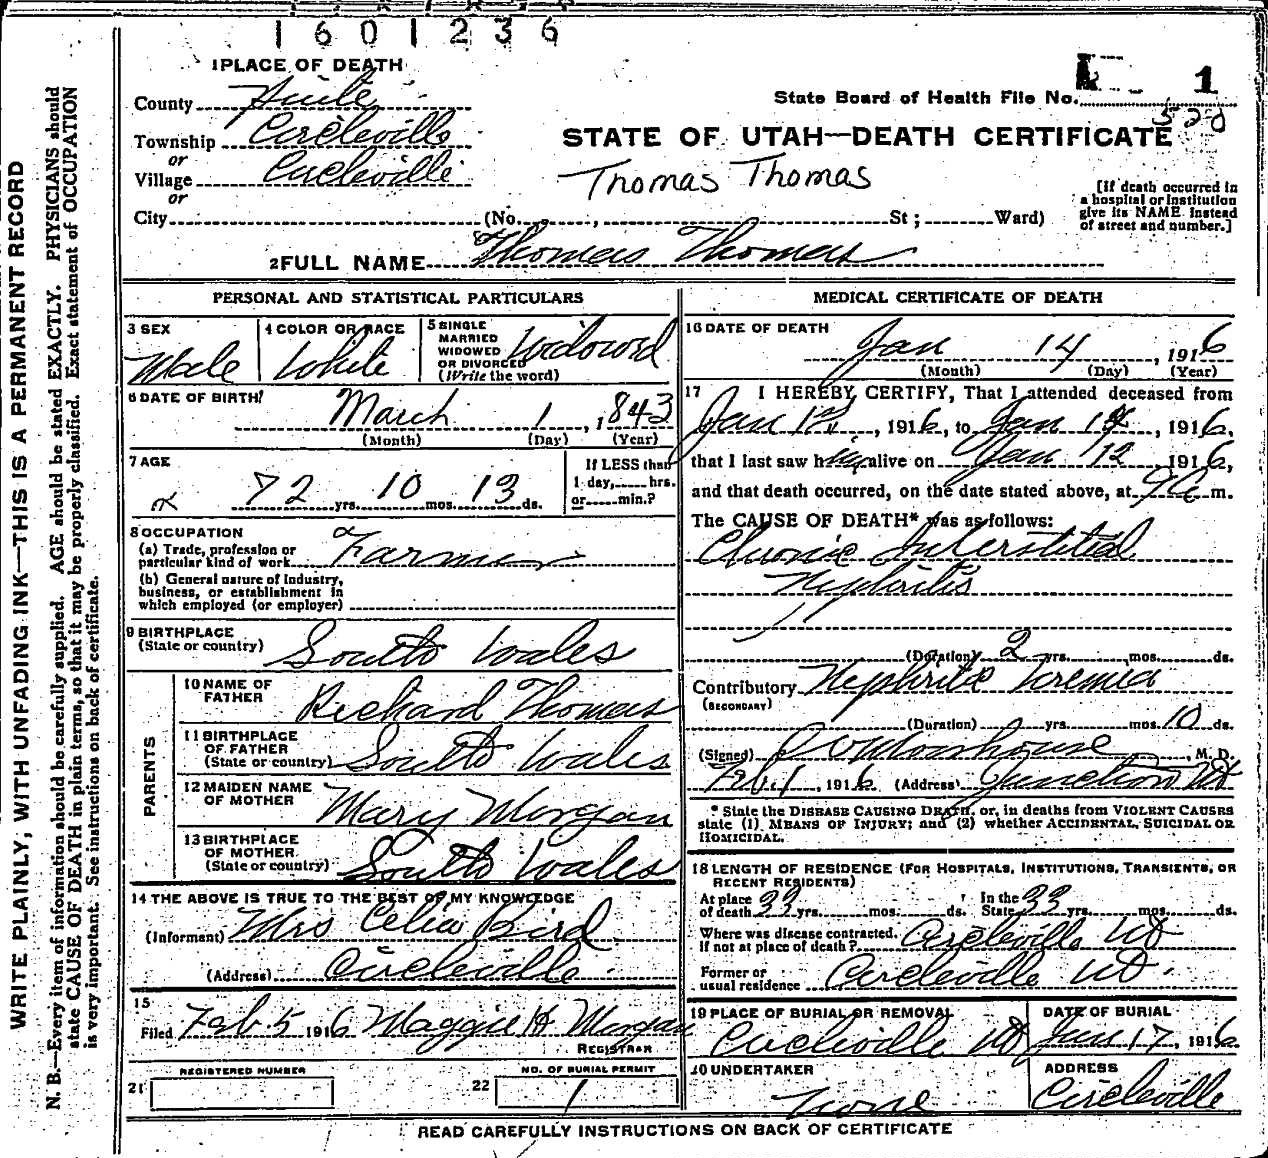 1601236
1 PLACE OF DEATH
County Piute
Township Circleville
or
Village Circleville
or
City (No. , St ; Ward)
State Board of Health File No. 1
520
STATE OF UTAH—DEATH CERTIFICATE
Thomas Thomas
[If death occurred in
a hospital or institution
give its NAME instead
of street and number.]
2 FULL NAME Thomas Thomas
PERSONAL AND STATISTICAL PARTICULARS
3 SEX
Male
4 COLOR OR RACE
White
5 SINGLE
MARRIED
WIDOWED
OR DIVORCED
(Write the word)
Widowd
6 DATE OF BIRTH
March 1, 1843
(Month) (Day) (Year)
7 AGE
72 yrs. 10 mos. 13 ds.
If LESS than
1 day, hrs.
or min.?
8 OCCUPATION
(a) Trade, profession or
particular kind of work Farmer
(b) General nature of Industry,
business, or establishment in
which employed (or employer)
9 BIRTHPLACE
(State or country) South Wales
PARENTS
10 NAME OF
FATHER Richard Thomas
11 BIRTHPLACE
OF FATHER
(State or country) South Wales
12 MAIDEN NAME
OF MOTHER Mary Morgan
13 BIRTHPLACE
OF MOTHER
(State or country) South Wales
14 THE ABOVE IS TRUE TO THE BEST OF MY KNOWLEDGE
(Informant) Mrs Celia Bird
(Address) Circleville
15
Filed Feb. 5 1916 Maggie H Morgan
REGISTRAR
REGISTERED NUMBER
21
NO. OF BURIAL PERMIT
22 1
MEDICAL CERTIFICATE OF DEATH
16 DATE OF DEATH
Jan 14, 1916
(Month) (Day) (Year)
17 I HEREBY CERTIFY, That I attended deceased from
Jan 12, 1916, to Jan 14, 1916,
that I last saw him alive on Jan 12 1916,
and that death occurred, on the date stated above, at 9 a m.
The CAUSE OF DEATH* was as follows:
Chronic Interstitial
Nephritis
(Duration) 2 yrs. mos. ds.
Contributory Nephritic Uremia
(SECONDARY)
(Duration) yrs. mos. 10 ds.
(Signed) M. D.
Feb 1, 1916 (Address) Junction Ut
* State the DISEASE CAUSING DEATH, or, in deaths from VIOLENT CAUSES
state (1) MEANS OF INJURY; and (2) whether ACCIDENTAL, SUICIDAL OR
HOMICIDAL.
18 LENGTH OF RESIDENCE (FOR HOSPITALS, INSTITUTIONS, TRANSIENTS, OR
RECENT RESIDENTS)
At place
of death 33 yrs. mos. ds. In the State 33 yrs. mos. ds.
Where was disease contracted.
If not at place of death? Circleville Ut
Former or
usual residence Circleville Ut.
19 PLACE OF BURIAL OR REMOVAL
Circleville Ut
DATE OF BURIAL
Jan. 17, 1916.
20 UNDERTAKER
None
ADDRESS
Circleville
READ CAREFULLY INSTRUCTIONS ON BACK OF CERTIFICATE
WRITE PLAINLY, WITH UNFADING INK—THIS IS A PERMANENT RECORD
N. B.—Every item of information should be carefully supplied. AGE should be stated EXACTLY. PHYSICIANS should
state CAUSE OF DEATH in plain terms, so that it may be properly classified. Exact statement of OCCUPATION
is very important. See instructions on back of certificate.